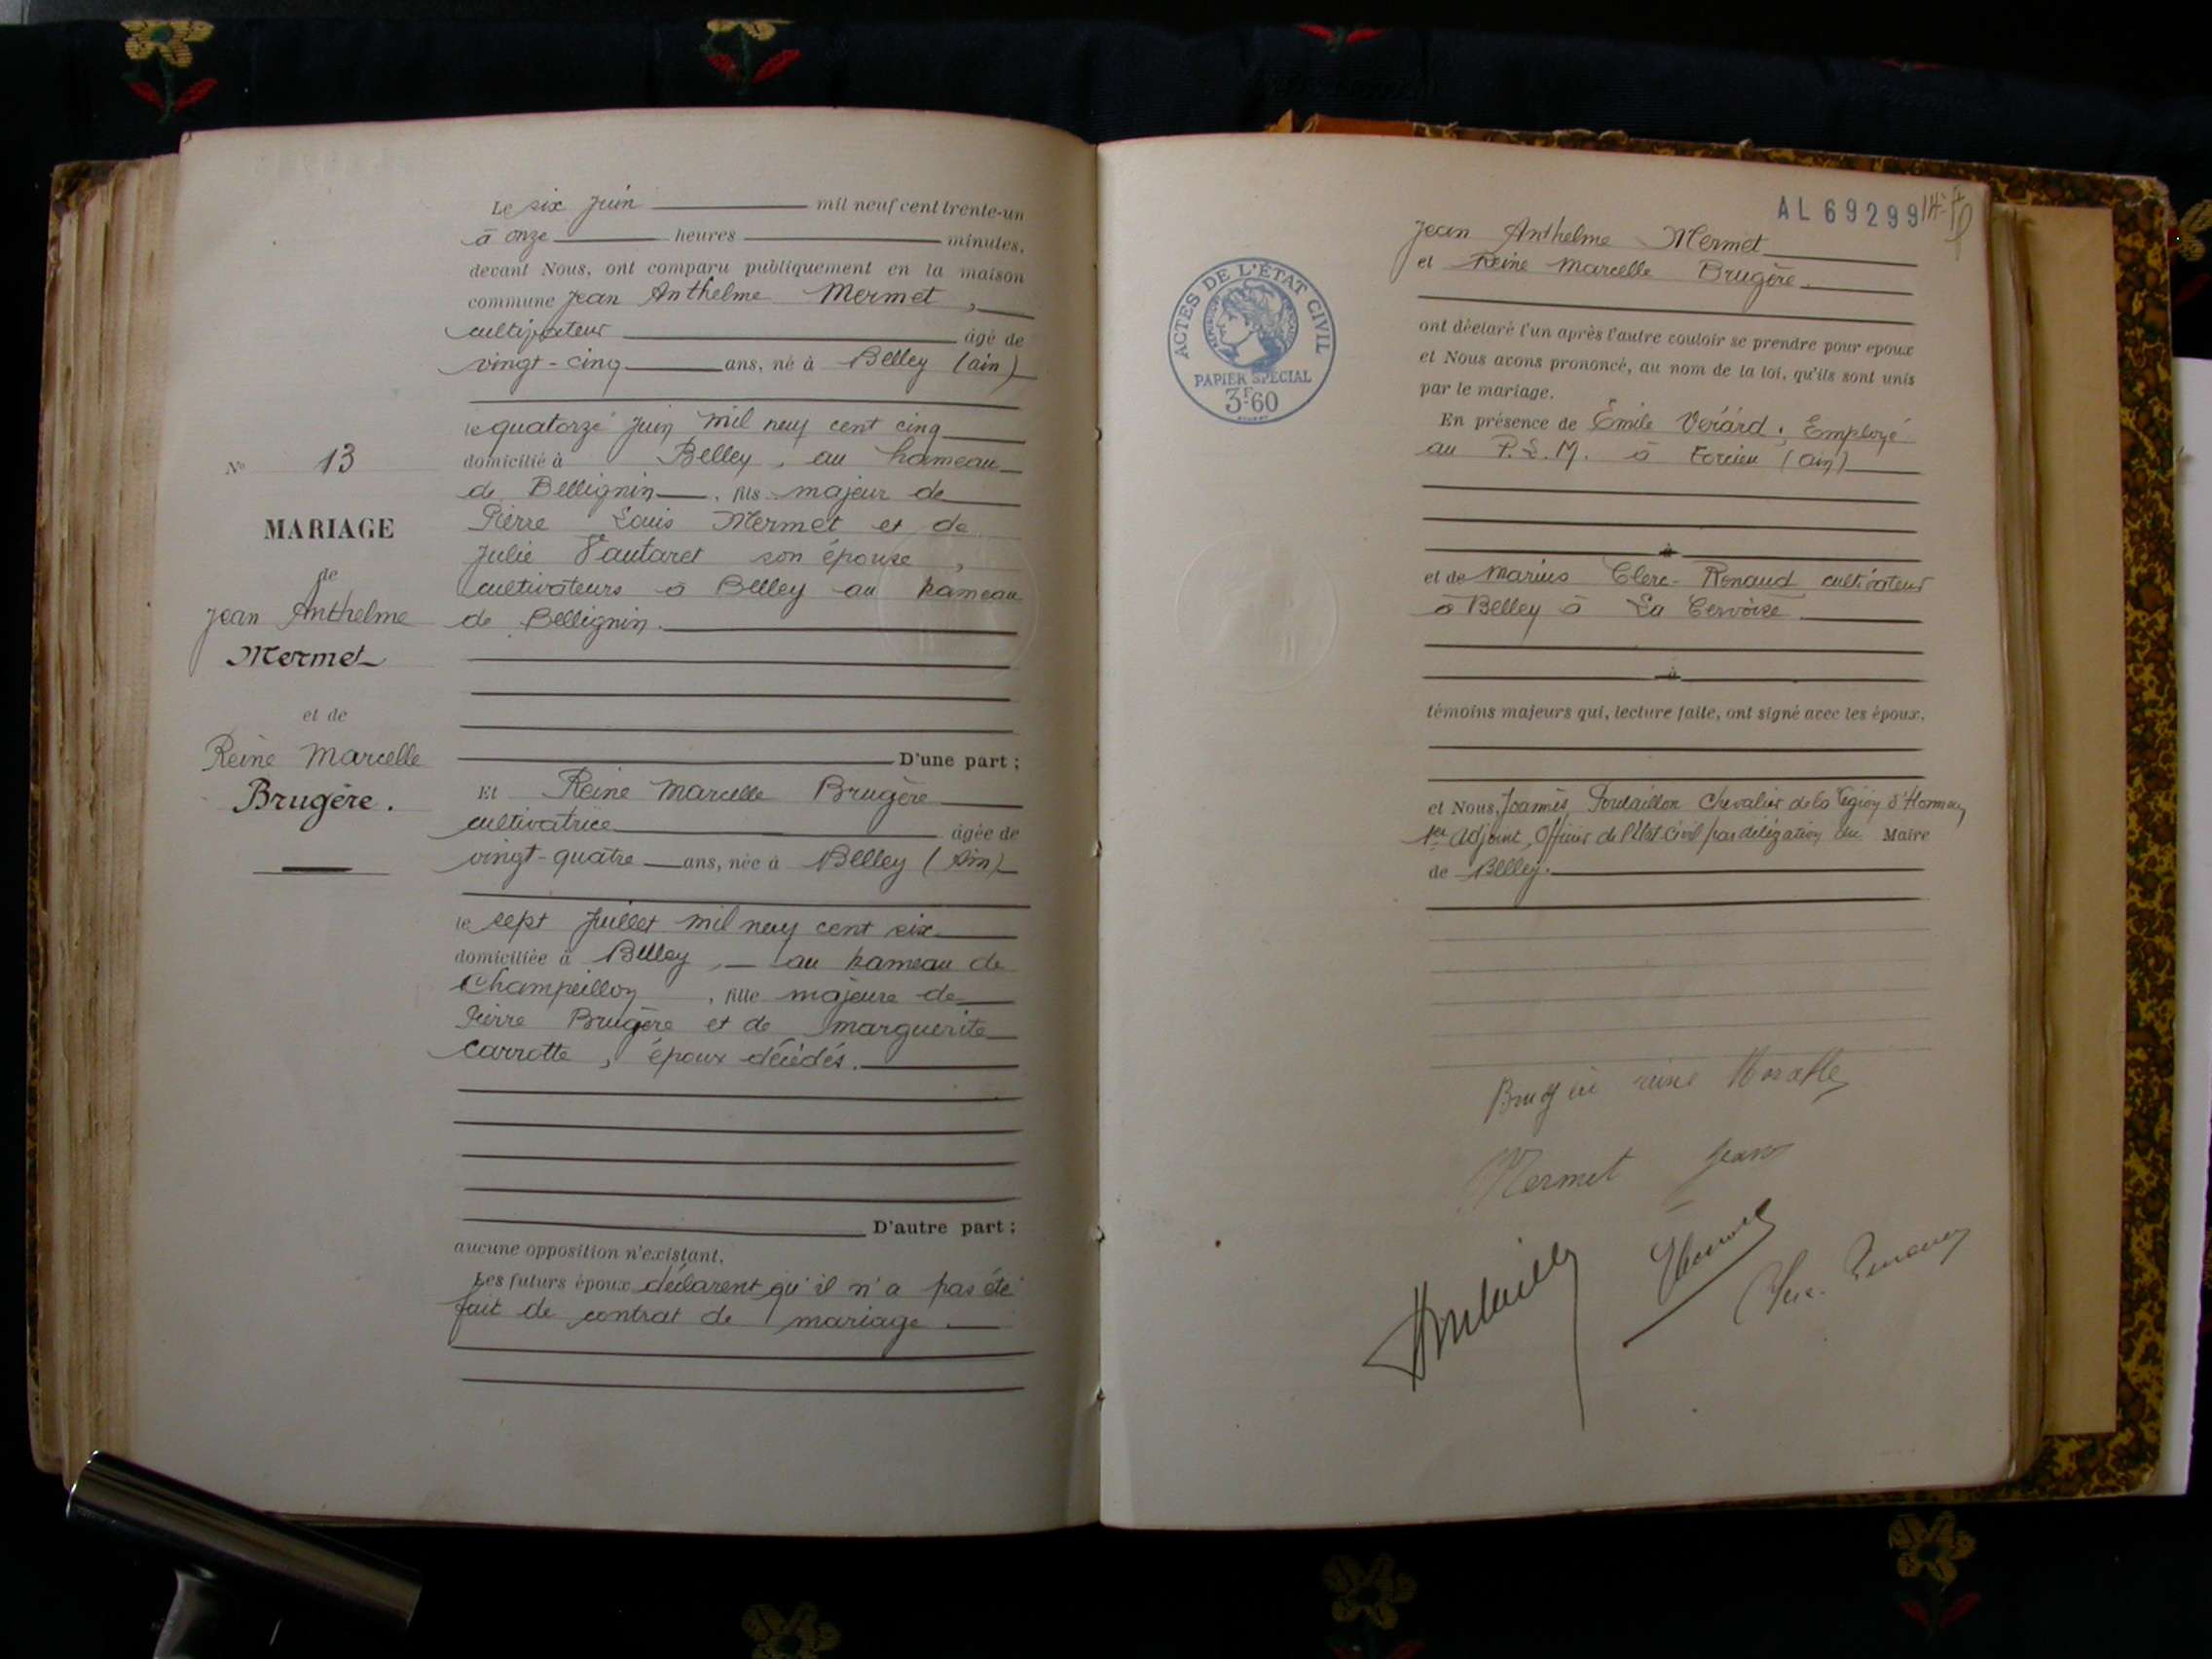 Le six Juin mil neuf cent trente-un
à onze heures minutes,
devant Nous, ont comparu publiquement en la maison
commune Jean Anthelme Mermet,
cultivateur âgé de
vingt-cinq ans, né à Belley (Ain)
le quatorze Juin mil neuf cent cinq
domicilié à Belley, au hameau
de Bellignin, fils majeur de
Pierre Louis Mermet et de
Julie Vautaret son épouse,
cultivateurs à Belley au hameau
de Bellignin.
D'une part ;
Et Reine Marcelle Brugère
cultivatrice âgée de
vingt-quatre ans, née à Belley (Ain)
le sept Juillet mil neuf cent six
domiciliée à Belley, au hameau de
Champeillon, fille majeure de
Pierre Brugère et de Marguerite
Carrotte, époux décédés.
D'autre part ;
aucune opposition n'existant.
Les futurs époux déclarent qu'il n'a pas été
fait de contrat de mariage.
No 13
MARIAGE
de
Jean Anthelme
Mermet
et de
Reine Marcelle
Brugère.
AL 69299
Jean Anthelme Mermet
et Reine Marcelle Brugère.
ont déclaré l'un après l'autre vouloir se prendre pour époux
et Nous avons prononcé, au nom de la loi, qu'ils sont unis
par le mariage.
En présence de Emile Verard, Employé
au P.L.M. à (Ain)
à
et de Marius Clerc-Renaud cultivateur
à Belley à La Cervoise
à
témoins majeurs qui, lecture faite, ont signé avec les époux,
et Nous, Joannès Chevalier de la Légion d'Honneur
1er Adjoint, Officier de l'Etat Civil par délégation du Maire
de Belley.
ACTES DE L'ÉTAT CIVIL
PAPIER SPÉCIAL
3F60
Mermet Jean